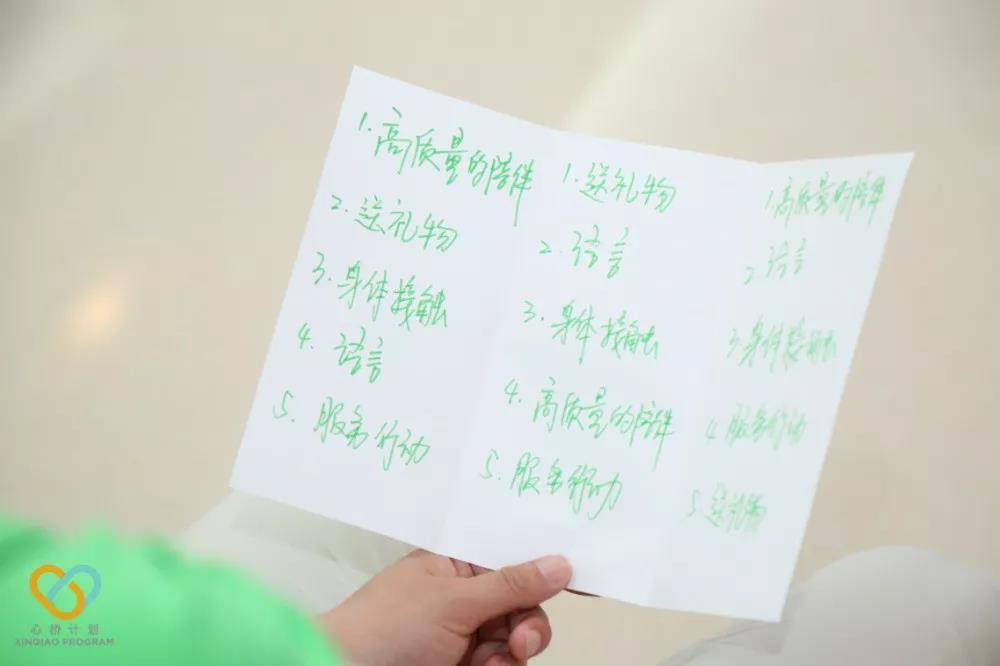 1.高质量的陪伴
2.送礼物
3.身体接触
4.语言
5.服务行动
1.送礼物
2.语言
3.身体接触
4.高质量的陪伴
5.服务行动
1.高质量的陪伴
2.语言
3.身体接触
4.服务行动
5.送礼物
心桥计划
XINQIAO PROGRAM